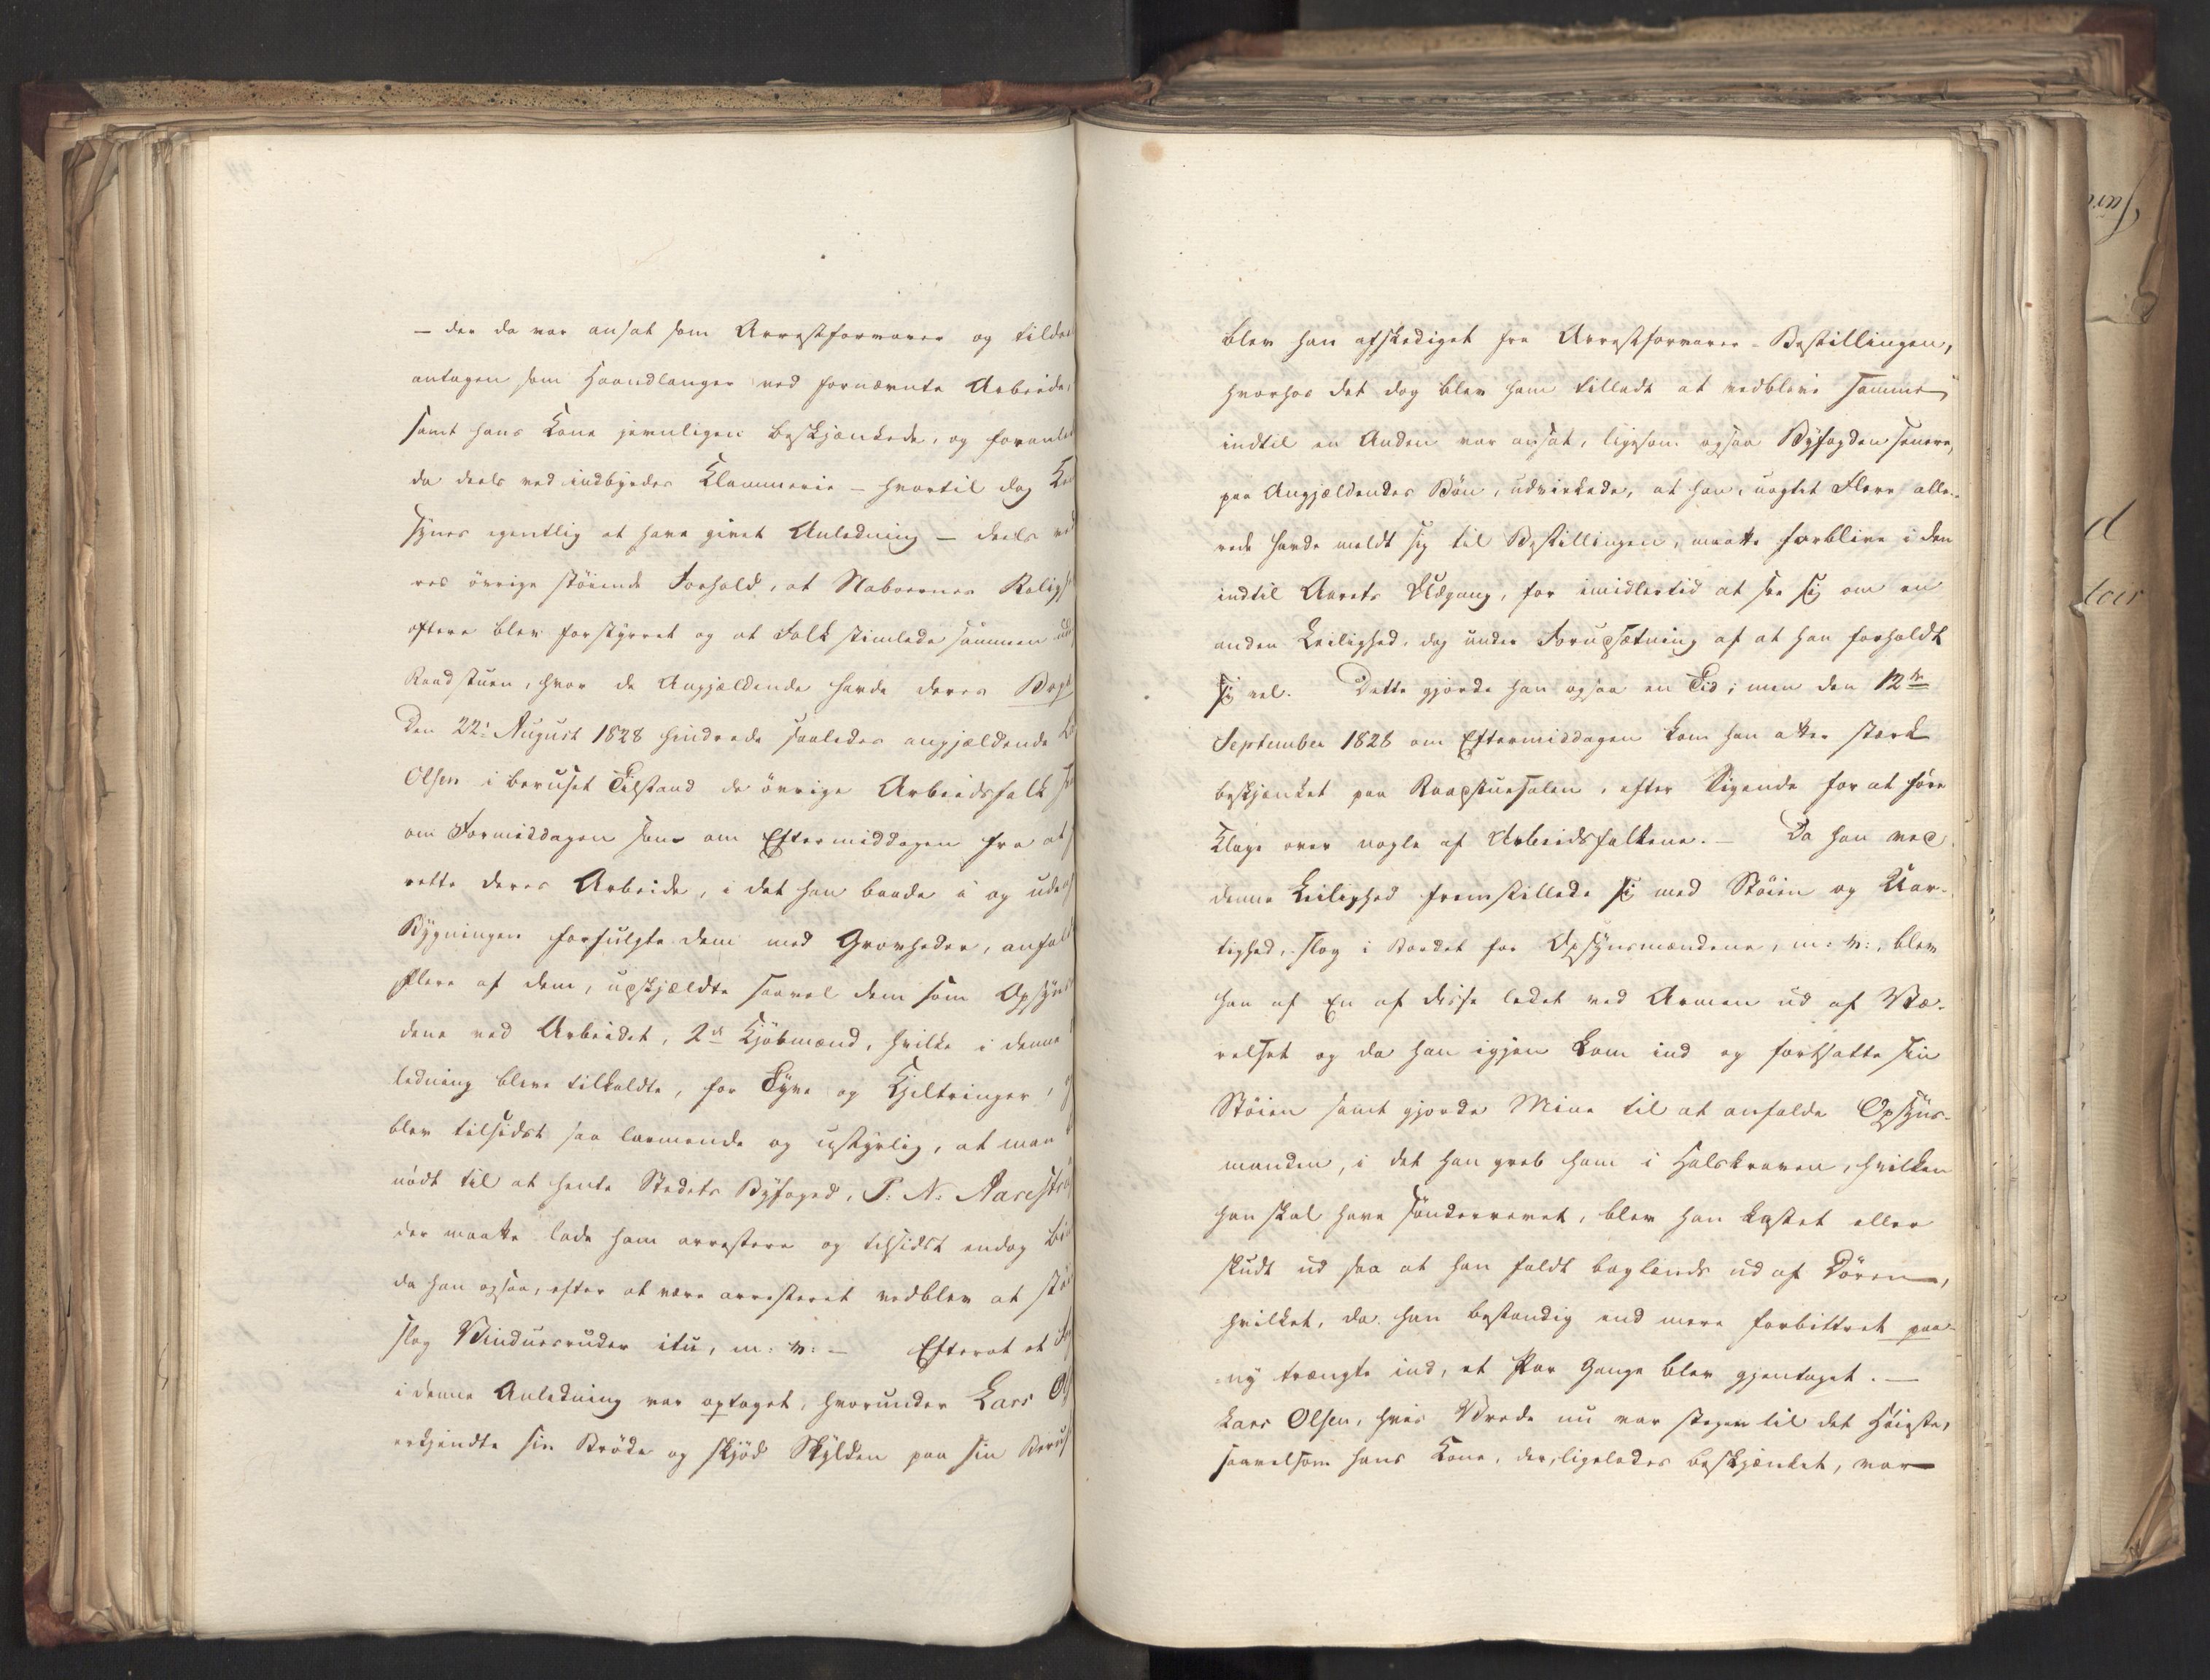 — der da var ansat som Arrestforvarer og tildee
antagen som Haandlanger ved fornævnte Arbeide,
samt hans Kone jevnligen beskjænkede, og foranled
da deels ved indbyrdes Klammerie — hvortil dog Ko
synes egentlig at have givet Anledning — deels ve
res övrige störende Forhold, at Naboernes Rolig
oftere blev forstyrret og at Folk stimlede sammen
Raadstuen, hvor de Angjældende havde deres Bop
Den 22: August 1828 hindrede saaledes angjældende L
Olsen i beruset Tilstand de övrige Arbeidsfolk
om Formiddagen som om Eftermiddagen fra at
rette deres Arbeide, i det han baade i og uden
Bygningen forfulgte dem med Grovheder, anfal
flere af dem, udskjældte saavel dem som Opsyns
dene ved Arbeidet, 2de Kjöbmænd, hvilke i denne
ledning bleve tilkaldte, for Tyve og Kjeltringer,
blev tilsidst saa larmende og ustyrlig, at man
nödt til at hente Stedets Byfoged, P: N: Aarestr
der maatte lade ham arrestere og tilsidst endog bi
da han ogsaa, efter at være arresteret vedblev at stö
slog Vinduesruder itu, m: v: — Efterat et
i denne Anledning var optaget, hvorunder Lars Ol
erkjendte sin Bröde og skjöd Skylden paa sin Berus
blev han afskediget fra Arrestforvarer-Bestillingen,
hvorhos det dog blev ham tilladt at vedblive samme
indtil en Anden var ansat, ligesom ogsaa Byfogden senere,
paa Angjældendes Bön, udvirkede, at han, uagtet Flere alle-
rede havde meldt sig til Bestillingen, maatte forblive i den
indtil Aarets Udgang, for imidlertid at see sig om en
anden Leilighed, dog under Forudsætning af at han forholdt
sig vel. Dette gjorde han ogsaa en Tid; men den 12te
September 1828 om Eftermiddagen kom han atter stærk
beskjænket paa Raadstuesalen, efter Sigende for at före
Klage over nogle af Arbeidsfolkene. — Da han ved
denne Leilighed fremstillede sig med Stöien og Uar-
tighed, slog i Bordet for Opsynsmændene, m: v:, blev
han af En af disse ledet ved Armen ud af Væ-
relset og da han igjen kom ind og fortsatte sin
Stöien samt gjorde Mine til at anfalde Opsyns-
manden, i det han greb ham i Halskraven, hvilken
han skal have sönderrevet, blev han kastet eller
skudt ud saa at han faldt baglænds ud af Dören,
hvilket, da han bestandig end mere forbittret paa-
ny trængte ind, et Par Gange blev gjentaget. —
Lars Olsen, hvis Vrede nu var stegen til det Höieste,
saavelsom hans Kone, der, ligeledes beskjænket, var